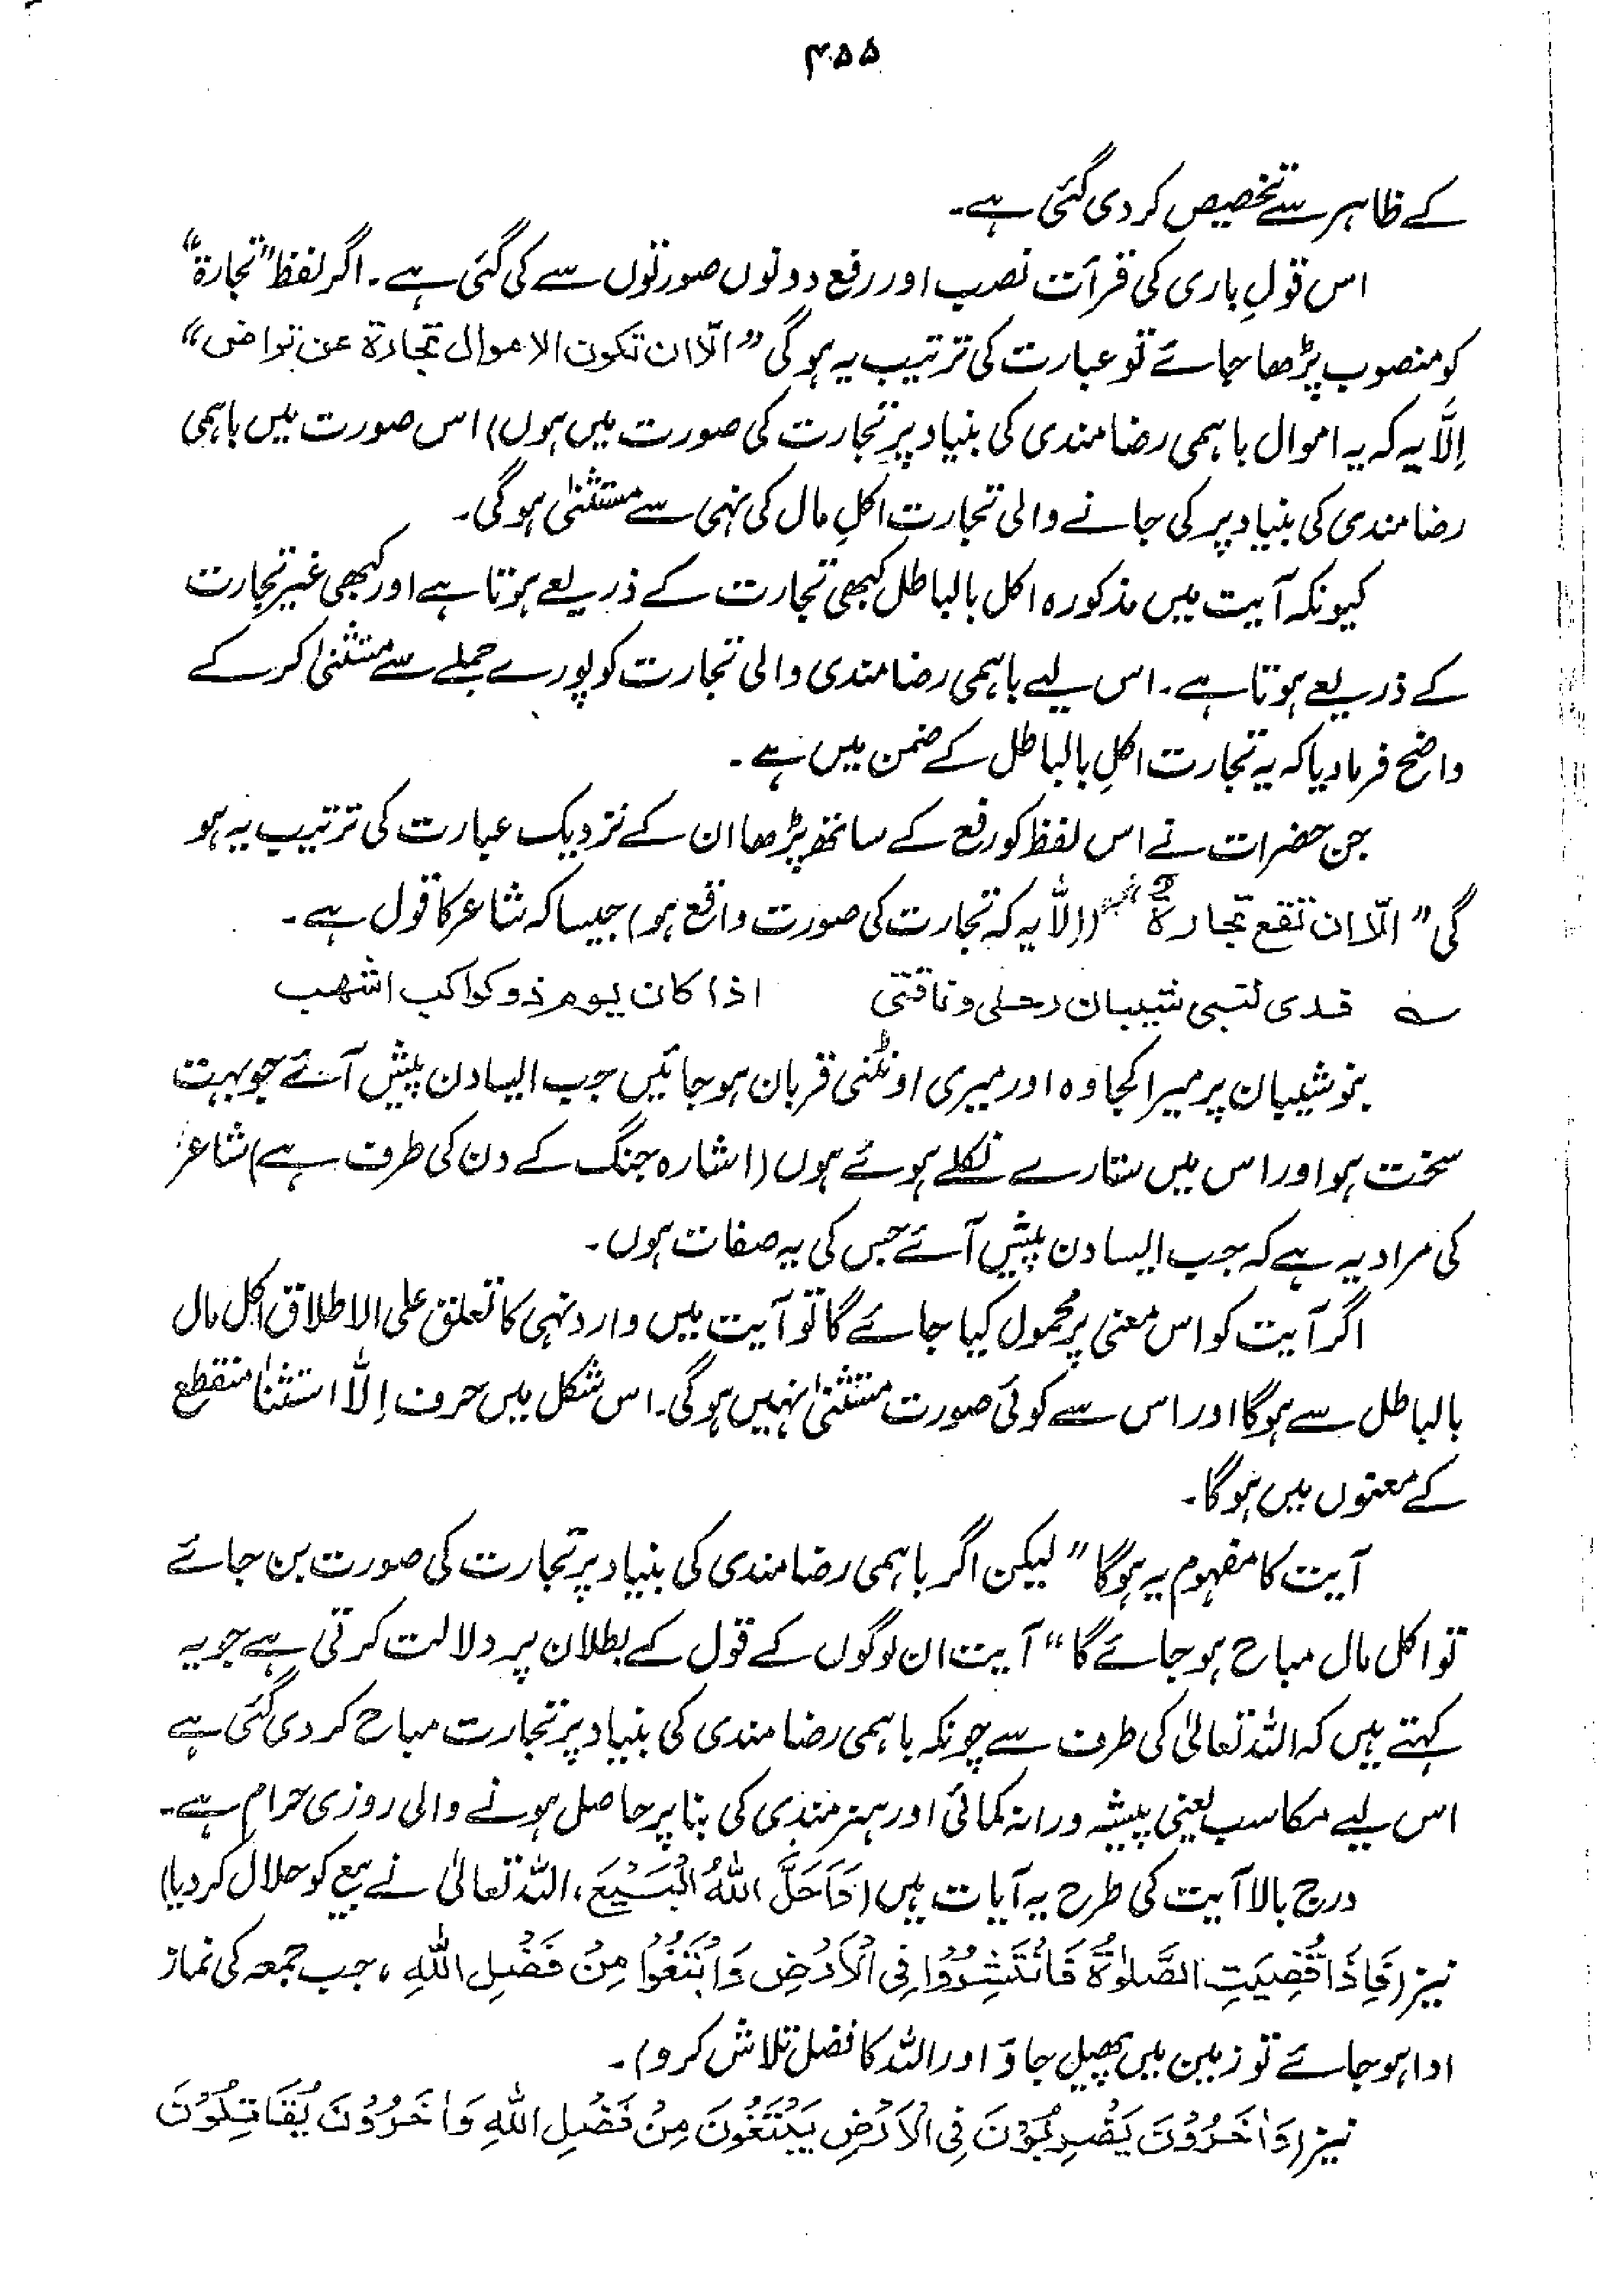 ۴۵۵
کے ظاہر سے تخصیص کر دی گئی ہے۔
اس قولِ باری کی قرأت نصب اور رفع دونوں صورتوں سے کی گئی ہے۔ اگر لفظ "تجارۃ"
کو منصوب پڑھا جائے تو عبارت کی ترتیب یہ ہو گی "الّا ان تکون الاموال تجارۃ عن تراض"
اِلّا یہ کہ یہ اموال باہمی رضامندی کی بنیاد پر تجارت کی صورت میں ہوں) اس صورت میں باہمی
رضامندی کی بنیاد پر کی جانے والی تجارت اکلِ مال کی نہی سے مستثنیٰ ہو گی۔
کیونکہ آیت میں مذکورہ اکل بالباطل کبھی تجارت کے ذریعے ہوتا ہے اور کبھی غیر تجارت
کے ذریعے ہوتا ہے۔ اس لیے باہمی رضامندی والی تجارت کو پورے جملے سے مستثنیٰ کر کے
واضح فرما دیا کہ یہ تجارت اکلِ بالباطل کے ضمن میں ہے۔
جن حضرات نے اس لفظ کو رفع کے ساتھ پڑھا ان کے نزدیک عبارت کی ترتیب یہ ہو
گی "الّا ان تقع تجارۃٌ" (اِلّا یہ کہ تجارت کی صورت واقع ہو) جیسا کہ شاعر کا قول ہے۔
؎ فدی لبنی شیبان رحلی وناقتی اذا کان یوم ذو کواکب اشھب
بنو شیبان پر میرا کجاوہ اور میری اونٹنی قربان ہو جائیں جب ایسا دن پیش آئے جو بہت
سخت ہو اور اس میں ستارے نکلے ہوئے ہوں (اشارہ جنگ کے دن کی طرف ہے) شاعر
کی مراد یہ ہے کہ جب ایسا دن پیش آئے جس کی یہ صفات ہوں۔
اگر آیت کو اس معنی پر محمول کیا جائے گا تو آیت میں وارد نہی کا تعلق علی الاطلاق اکل مال
بالباطل سے ہو گا اور اس سے کوئی صورت مستثنیٰ نہیں ہو گی۔ اس شکل میں حرف اِلّا استثناء منقطع
کے معنوں میں ہو گا۔
آیت کا مفہوم یہ ہو گا "لیکن اگر باہمی رضامندی کی بنیاد پر تجارت کی صورت بن جائے
تو اکل مال مباح ہو جائے گا" آیت ان لوگوں کے قول کے بطلان پر دلالت کرتی ہے جو یہ
کہتے ہیں کہ اللہ تعالیٰ کی طرف سے چونکہ باہمی رضامندی کی بنیاد پر تجارت مباح کر دی گئی ہے
اس لیے مکاسب یعنی پیشہ ورانہ کمائی اور ہنرمندی کی بنا پر حاصل ہونے والی روزی حرام ہے۔
درج بالا آیت کی طرح یہ آیات ہیں (وَاَحَلَّ اللّٰہُ الْبَیْعَ، اللہ تعالیٰ نے بیع کو حلال کر دیا)
نیز (فَاِذَا قُضِیَتِ الصَّلٰوۃُ فَانْتَشِرُوْا فِی الْاَرْضِ وَابْتَغُوْا مِنْ فَضْلِ اللّٰہِ، جب جمعہ کی نماز
ادا ہو جائے تو زمین میں پھیل جاؤ اور اللہ کا فضل تلاش کرو)۔
نیز (وَاٰخَرُوْنَ یَضْرِبُوْنَ فِی الْاَرْضِ یَبْتَغُوْنَ مِنْ فَضْلِ اللّٰہِ وَاٰخَرُوْنَ یُقَاتِلُوْنَ